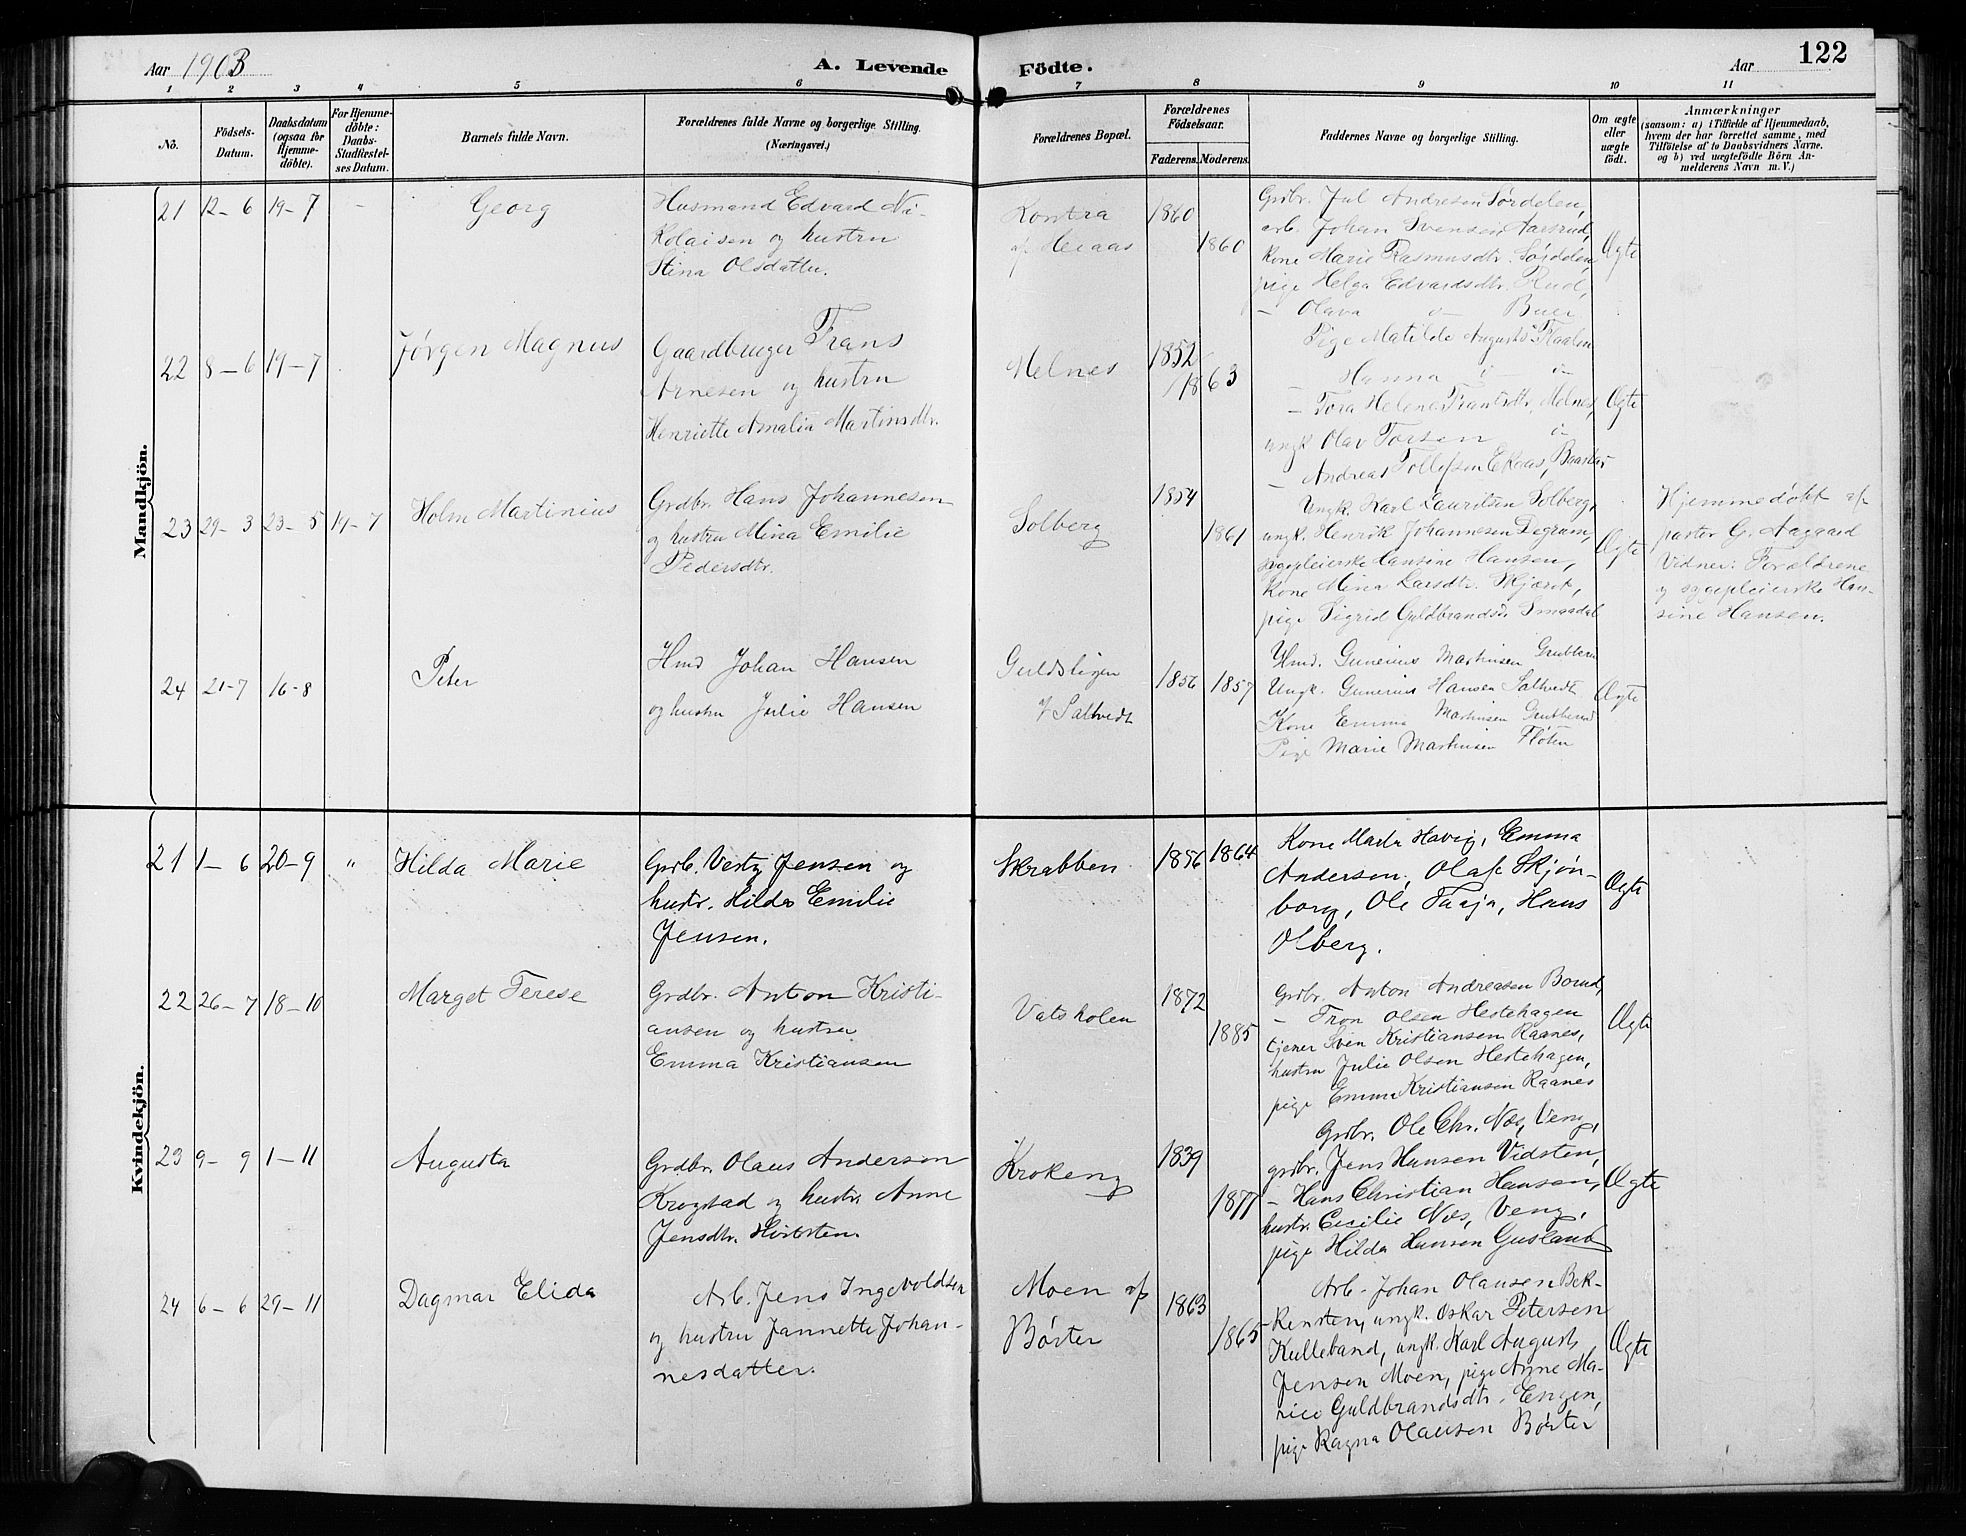 Aar 1903
A. Levende Födte.
Aar
122
1 2 3 4 5 6 7 8 9 10 11
No.
Födsels-
Datum.
Daabsdatum
(ogsaa for
Hjemme-
döbte).
For Hjemme-
döbte:
Daabs-
Stadfæstel-
ses Datum.
Barnets fulde Navn.
Forældrenes fulde Navne og borgerlige Stilling.
(Næringsvei.)
Forældrenes Bopæl.
Forældrenes
Födselsaar.
Faderens. Moderens.
Faddernes Navne og borgerlige Stilling.
Om ægte
eller
uægte
födt.
Anmærkninger
(saasom: a) i Tilfælde af Hjemmedaab,
hvem der har forrettet samme, med
Tilföielse af to Daabsvidners Navne.
og b) ved uægtefödte Börn An-
melderens Navn m. V.)
Mandkjön.
21 12-6 19-7 -
Georg
Husmand Edvard Ni-
kolaisen og hustru
Stina Olsdatter.
Kontra
af Heiaas
1860
1860
Grdbr. Jul Andresen Sørdelen,
arb. Johan Svensen Aarsrud,
kone Marie Rasmusdtr. Sørdelen,
pige Helga Edvardsdtr. Rud,
- Olava Buer
Ægte
22 8-6 19-7
Jörgen Magnus
Gaardbruger Frans
Arnesen og hustru
Henriette Amalia Martinsdtr.
Melnes
1852
1863
Pige Matilde Augusts. Kaalen
Hanna
- Tora Helene Frantsdtr. Melnes,
ungk Olav Torsen
- Andreas Tollefsen Ekaas, Baastad
Ægte
23 29-3 23-5 19-7
Holm Martinius
Grdbr. Hans Johannesen
og hustru Mina Emilie
Pedersdtr.
Solberg
1854
1861
Ungk. Karl Lauritsen Solberg,
ungk. Henrik Johannesen Degrum,
sygepleierske Hansine Hansen,
Kone Mina Larsdtr. Skjæret,
pige Sigrid Guldbrandsdr. Smaadal
Ægte
Hjemmedøbt af
pastor G. Aagaard
Vidner: Forældrene
og sygepleierske Han-
sine Hansen.
24 21-7 16-8
Peter
Hmd Johan Hansen
og hustru Julie Hansen
Guldsligen
af Saltvedt
1856 1857
Hmd. Gunerius Martinsen Grubberud
Ungk. Gunerius Hansen Saltvedt
Kone Emma Martinsen Grubberud
Pige Marie Martinsen Fløten
Ægte
Kvindekjön.
21 1-6 20-9 "
Hilda Marie
Grdb. Jensen og
hustr. Hilda Emilie
Jensen.
Skrabben
1856 1864
Kone Marta Havig, Emma
Andersen, Olaf Skjøn-
borg, Ole Taaja, Hans
Olberg.
Ægte
22 26-7 18-10
Marget Terese
Grdbr. Anton Kristi-
ansen og hustru
Emma Kristiansen
Vatsholen
1872
1885
Grdbr. Anton Andreasen Borud,
- Tron Olsen Hestehagen
tjener Sven Kristiansen Raanes,
hustru Julie Olsen Hestehagen,
pige Emma Kristiansen Raanes
Ægte
23 9-9 1-11
Augusta
Grdbr. Olaus Anderson
Krogstad og hustr. Anne
Jensdtr. Hvitsten.
Krokeng
1839
1877
Grdbr. Ole Chr. Næs, Veng,
grdbr. Jens Hansen Vidsten,
- Hans Christian Hansen,
hustr. Cecilie Næs, Veng,
pige Hilda Hansen Guslund
Ægte
24 6-6 29-11
Dagmar Elida
Arb. Jens Ingevoldsen
og hustru Jannette Johan-
nesdatter.
Moen af
Børter
1863
1865
Arb. Johan Olausen Bek-
kensten, ungk. Oskar Petersen
Kulleband, ungk. Karl August
Jensen Moen, pige Anne Ma-
rie Guldbrandsdtr. Engen,
pige Ragna Olausen Børter
Ægte